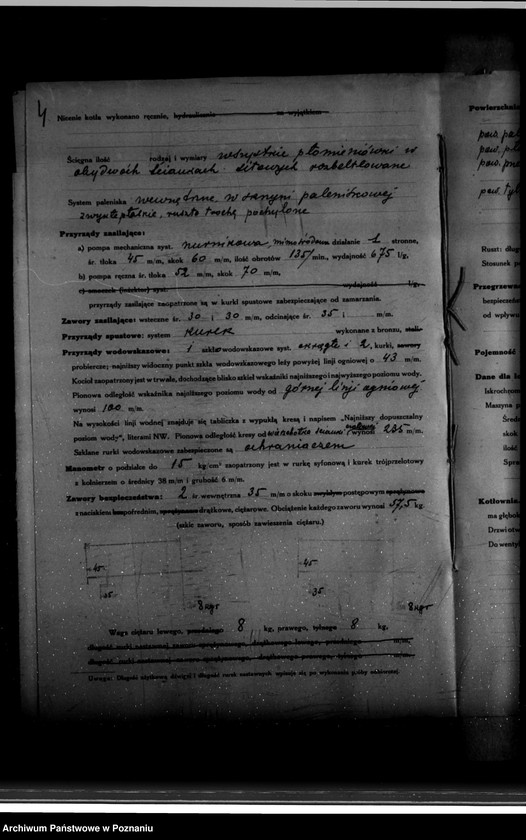 4
Nicenie kotła wykonano ręcznie, hydraulicznie na wyjątkiem
Ścięgna ilość rodzaj i wymiary wszystkie płomieniówki w
obydwóch ścianach sitowych rozbeltowane
System paleniska wewnętrzne, w skrzyni paleniskowej
zwykłe płaskie, ruszta trochę pochylone
Przyrządy zasilające:
a) pompa mechaniczna syst. nurnikowa, mimośrodowa działanie 1 stronne,
śr. tłoka 45 m/m, skok 60 m/m, ilość obrotów 135/min., wydajność 675 l/g,
b) pompa ręczna śr. tłoka 52 m/m, skok 70 m/m,
c) smoczek (inżektor) syst. wydajność l/g,
przyrządy zasilające zaopatrzone są w kurki spustowe zabezpieczające od zamarzania.
Zawory zasilające: wsteczne śr. 30 i 30 m/m, odcinające śr. 35 i m/m.
Przyrząd spustowy: system kurek wykonane z bronzu,
Przyrządy wodowskazowe: 1 szkło wodowskazowe syst. okrągłe i 2, kurki, zawory
probiercze; najniższy widoczny punkt szkła wodowskazowego leży powyżej linji ogniowej o 43 m/m.
Kocioł zaopatrzony jest w trwałe, dochodzące blisko szkieł wskaźniki najniższego i najwyższego poziomu wody.
Pionowa odległość wskaźnika najniższego poziomu wody od górnej linji ogniowej
wynosi 100 m/m.
Na wysokości linji wodnej znajduje się tabliczka z wypukłą kresą i napisem „Najniższy dopuszczalny
poziom wody", literami NW. Pionowa odległość kresy od wynosi 235 m/m.
Szklane rurki wodowskazowe zabezpieczone są ochraniaczem
Manometr o podziałce do 15 kg/cm² zaopatrzony jest w rurkę syfonową i kurek trójprzelotowy
z kołnierzem o średnicy 38 m/m i grubość 6 m/m.
Zawory bezpieczeństwa: 2 śr. wewnętrzna 35 m/m o skoku zwykłym postępowym
z naciskiem bezpośrednim, sprężynowe drążkowe, ciężarowe. Obciążenie każdego zaworu wynosi 57,5 kg.
(szkic zaworu, sposób zawieszenia ciężaru.)
45
35
8 kgr
45
35
8 kgr
Waga ciężaru lewego, przedniego 8 kg, prawego, tylnego 8 kg,
Uwaga: Długość użytkową dźwigni i długość rurek nastawnych wpisuje się po wykonaniu próby odbiorczej.
Powierzchnia
pow. pa
pow. pł
pow. prz
Ruszt: długo
Stosunek p
Przegrzew
bezpieczeń
od wpływ
Pojemność
Dane dla k
Iskrochron
Maszyna p
Średn
skok
ilość
Spra
Kotłownia.
ma głębok
Drzwi otw
Do wentyl
Archiwum Państwowe w Poznaniu